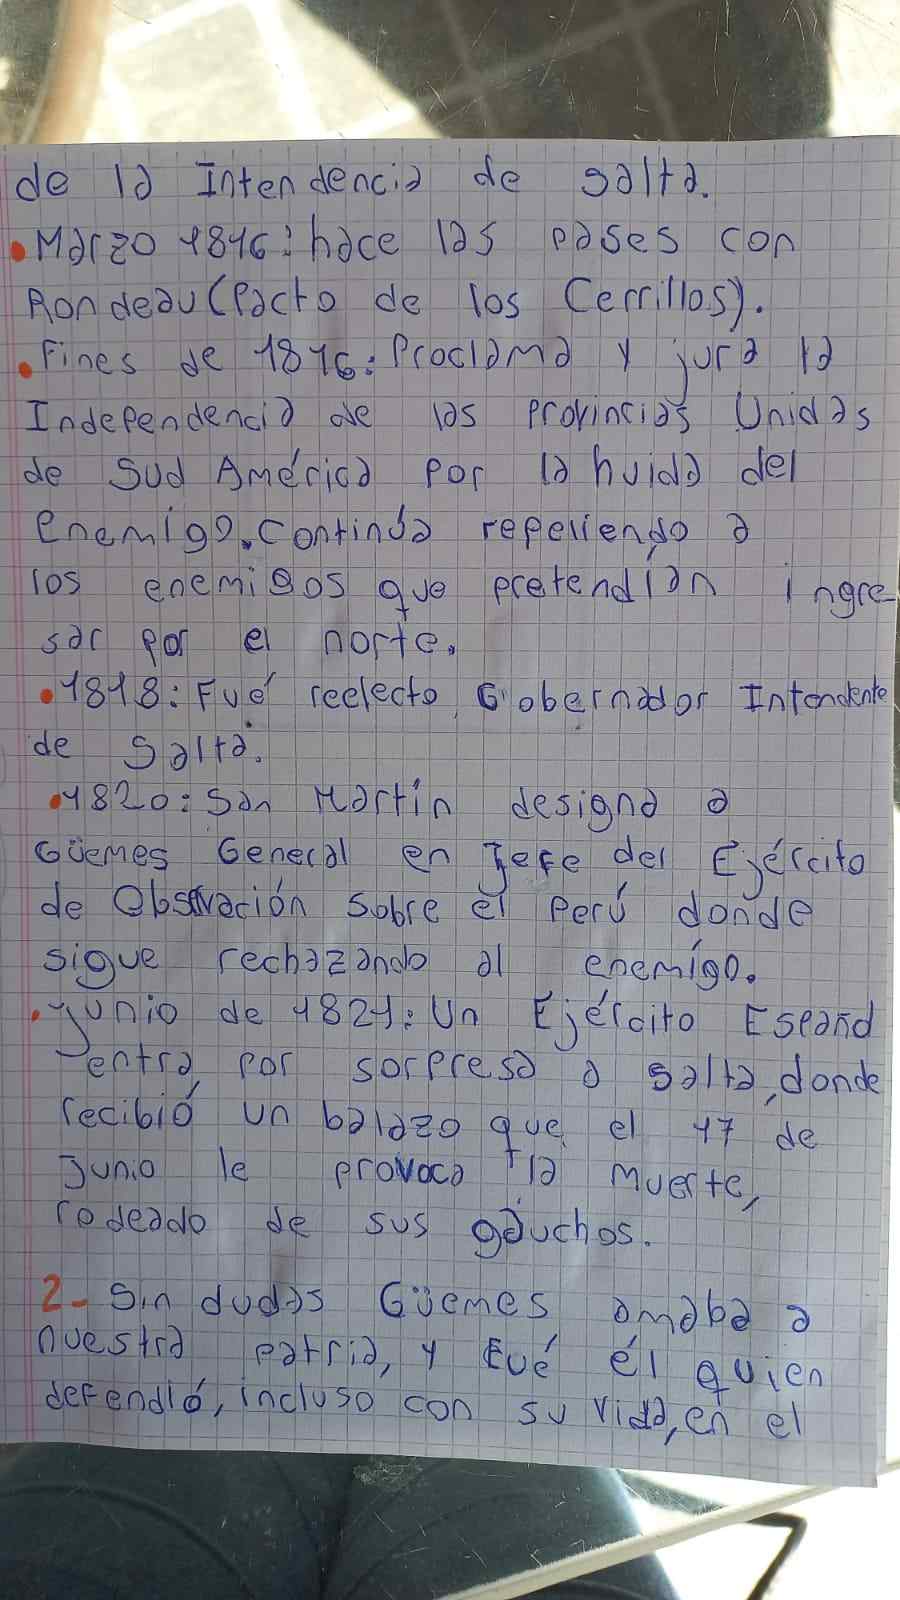 de la Intendencia de Salta.
• Marzo 1816: hace las pases con
Rondeau (Pacto de los Cerrillos).
• Fines de 1816: Proclama y jura la
Independencia de las provincias Unidas
de Sud América por la huida del
Enemigo. Continúa repeliendo a
los enemigos que pretendían ingre
sar por el norte.
• 1818: Fué reelecto Gobernador Intendente
de Salta.
• 1820: San Martín designa a
Güemes General en Jefe del Ejército
de Observación sobre el Perú donde
sigue rechazando al enemigo.
• Junio de 1821: Un Ejército Español
entra por sorpresa a Salta, donde
recibió un balazo que el 17 de
Junio le provoca la muerte,
rodeado de sus gauchos.
2- Sin dudas Güemes amaba a
nuestra patria, y Fué él quien
defendió, incluso con su vida, en el